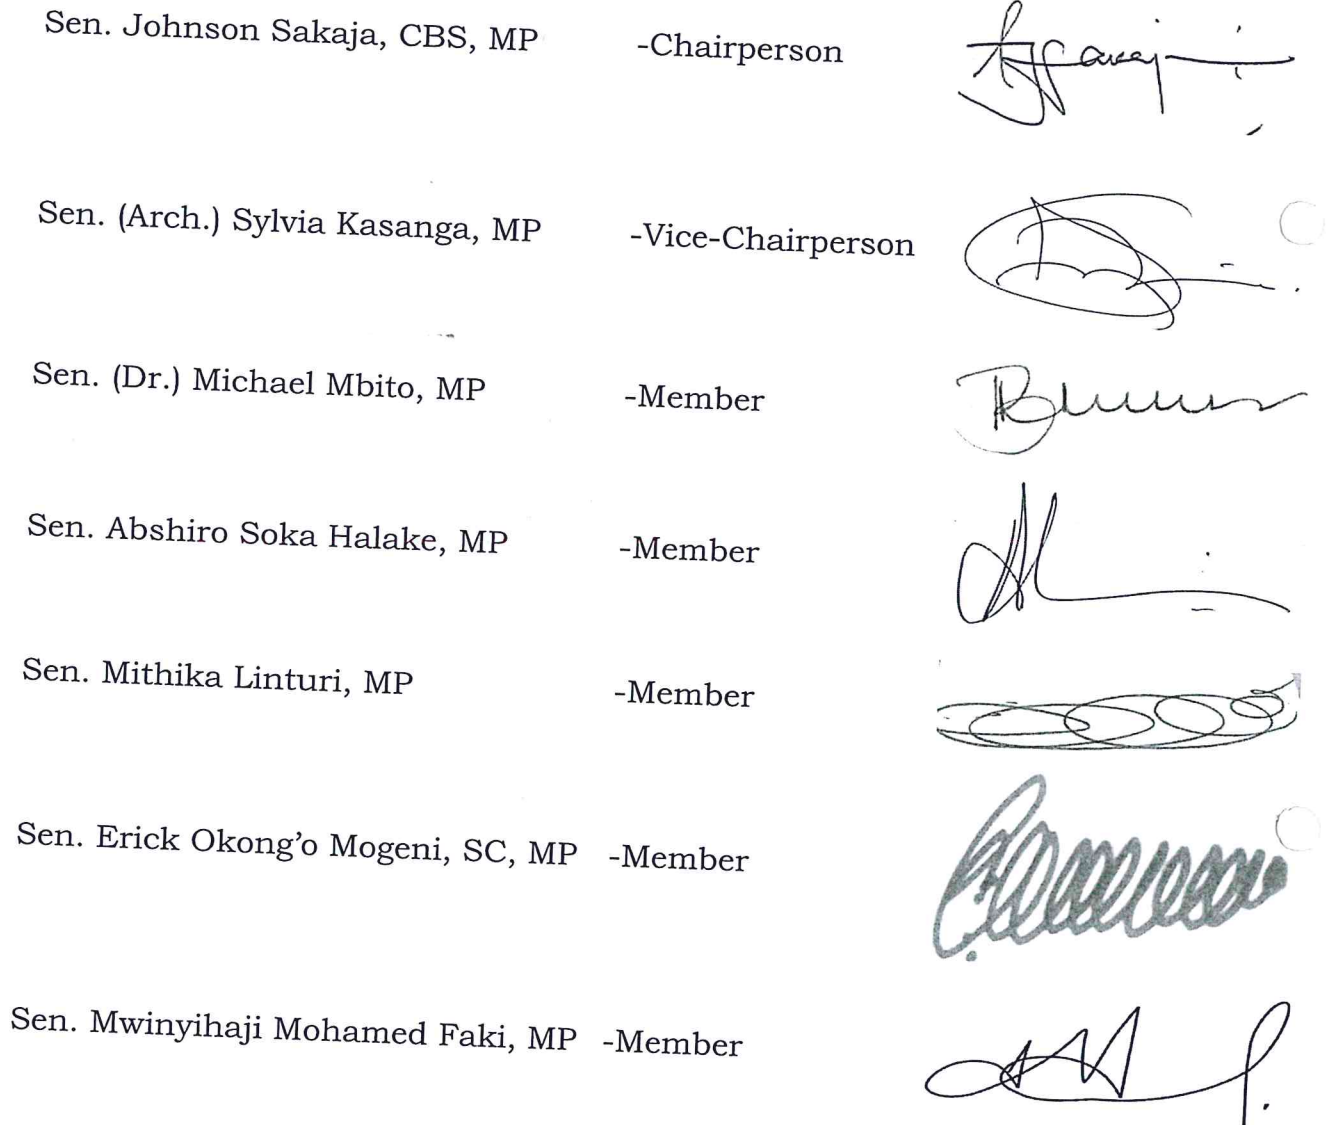 Sen. Johnson Sakaja, CBS, MP -Chairperson
Sen. (Arch.) Sylvia Kasanga, MP -Vice-Chairperson
Sen. (Dr.) Michael Mbito, MP -Member
Sen. Abshiro Soka Halake, MP -Member
Sen. Mithika Linturi, MP -Member
Sen. Erick Okong’o Mogeni, SC, MP -Member
Sen. Mwinyihaji Mohamed Faki, MP -Member